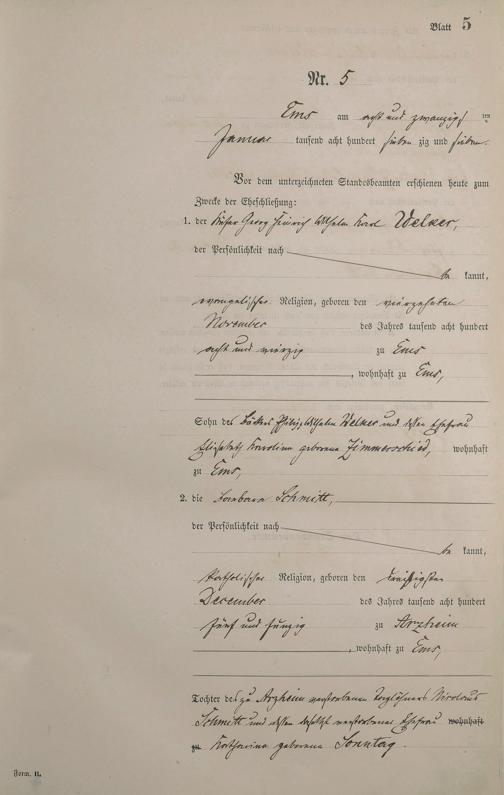 Blatt 5
Nr. 5
Ems am acht und zwanzigst ten
Januar tausend acht hundert sieben zig und sieben.
Vor dem unterzeichneten Standesbeamten erschienen heute zum
Zwecke der Eheschließung:
1. der Küfer Georg Heinrich Wilhelm Karl Welker,
der Persönlichkeit nach
be kannt,
evangelischer Religion, geboren den vierzehnten
November des Jahres tausend acht hundert
acht und vierzig zu Ems
, wohnhaft zu Ems,
Sohn des Bäckers Philipp Wilhelm Welker und dessen Ehefrau
Elisabeth Karolina geborene Zimmerschied, wohnhaft
zu Ems,
2. die Barbara Schmitt,
der Persönlichkeit nach
be kannt,
katholischer Religion, geboren den dreißigsten
December des Jahres tausend acht hundert
fünf und funzig zu Arzheim
, wohnhaft zu Ems,
Tochter des zu Arzheim verstorbenen Taglöhners Nicolaus
Schmitt und dessen daselbst verstorbener Ehefrau wohnhaft
zu Katharina geborene Sonntag.
Form. II.